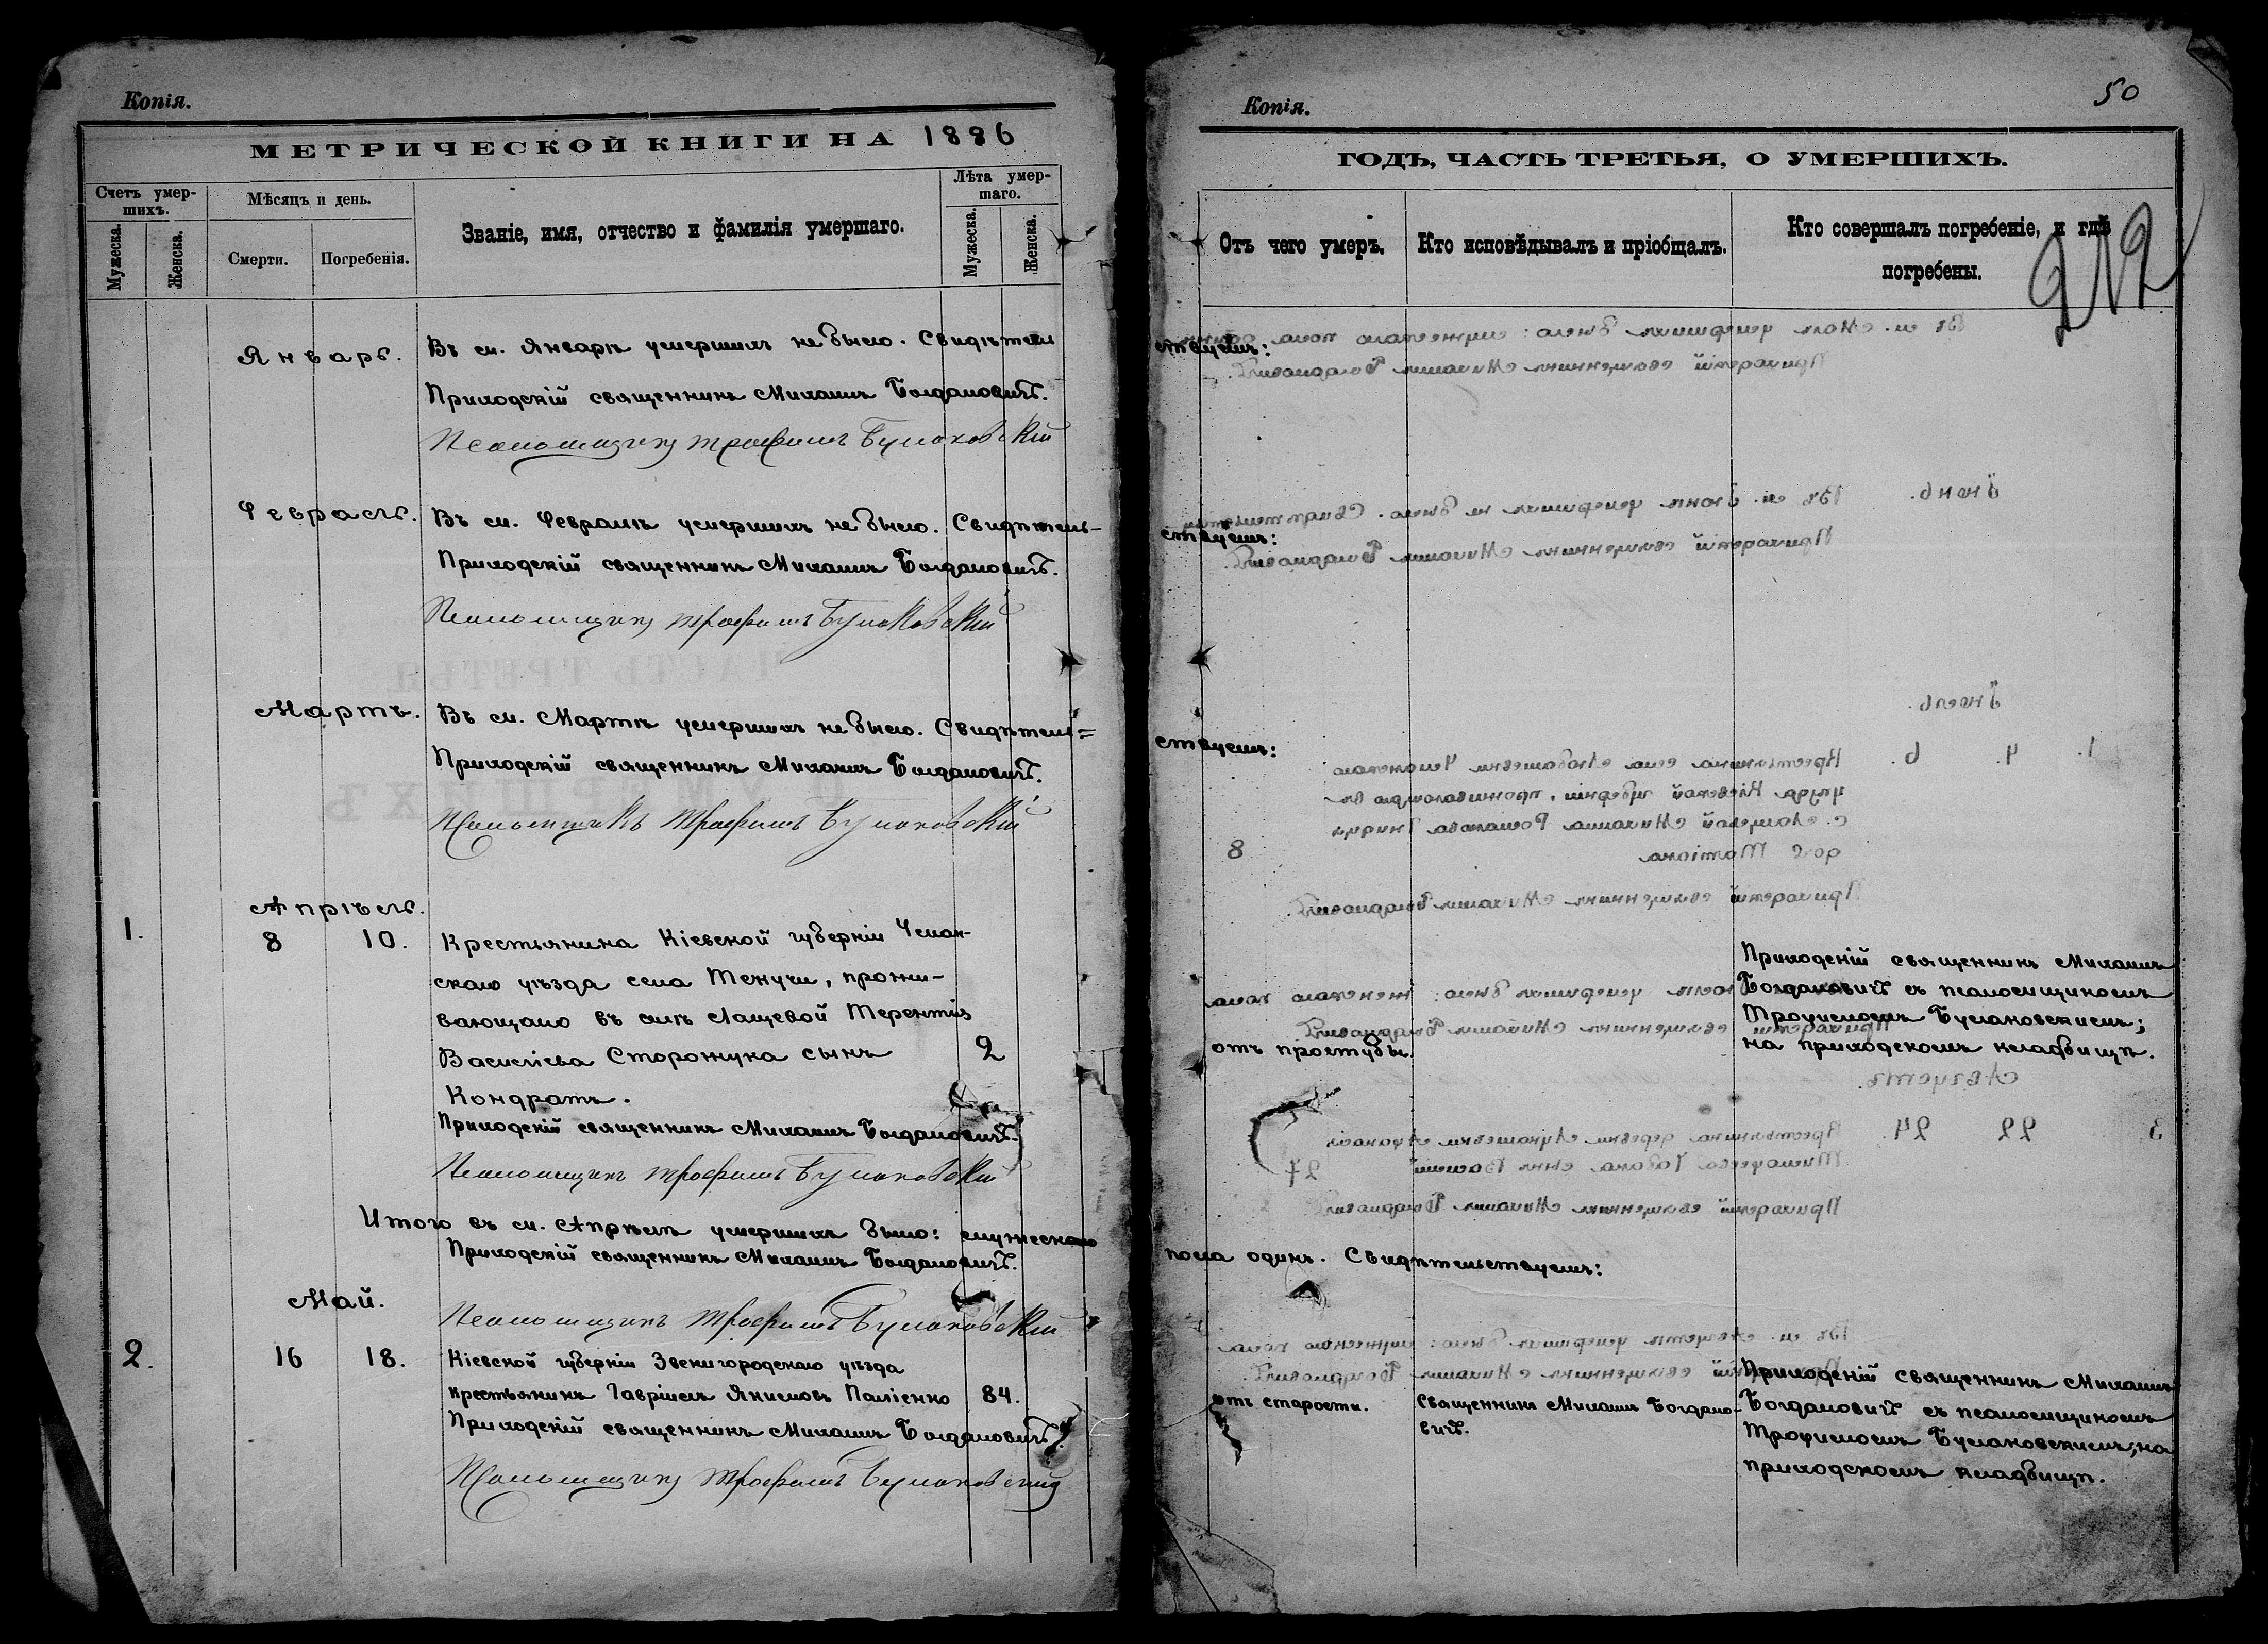 Копія.
МЕТРИЧЕСКОЙ КНИГИ НА 1886
Счетъ умер-
шихъ.
Мужеска.
Женска.
Мѣсяцъ и день.
Смерти.
Погребенія.
Званіе, имя, отчество и фамилія умершаго.
Лѣта умер-
шаго.
Мужеска.
Женска.
Январь.
Въ м. Январѣ умершихъ не было. Свидѣтель
Приходскій священникъ Михаилъ Богдановичъ.
Псаломщикъ Трофимъ Булаковскій
Февраль.
Въ м. Февралѣ умершихъ не было. Свидѣтель-
Приходскій священникъ Михаилъ Богдановичъ.
Псаломщикъ Трофимъ Булаковскій
Мартъ.
Въ м. Мартѣ умершихъ не было. Свидѣтель=
Приходскій священникъ Михаилъ Богдановичъ.
Псаломщикъ Трофимъ Булаковскій
Апрѣль.
1.
8
10.
Крестьянина Кіевской губерніи Уман-
скаго уѣзда села Текучи, прожи-
вающаго въ селѣ Лащевой Терентія
Василіева Сторожука сынъ
2
Кондратъ.
Приходскій священникъ Михаилъ Богдановичъ.
Псаломщикъ Трофимъ Булаковскій
Итого въ м. Апрѣлѣ умершихъ было: мужескаго
Приходскій священникъ Михаилъ Богдановичъ.
Май.
Псаломщикъ Трофимъ Булаковскій
2.
16
18.
Кіевской губерніи Звенигородскаго уѣзда
крестьянинъ Гавріилъ Якимовъ Паліенко
84.
Приходскій священникъ Михаилъ Богдановичъ.
Псаломщикъ Трофимъ Булаковскій
Копія.
50
ГОДЪ, ЧАСТЬ ТРЕТЬЯ, О УМЕРШИХЪ.
Отъ чего умеръ.
Кто исповѣдывалъ и пріобщалъ.
Кто совершалъ погребеніе, и гдѣ
погребены.
ствуемъ:
ствуемъ:
ствуемъ:
Приходскій священникъ Михаилъ
Богдановичъ съ псаломщикомъ
Трофимомъ Булаковскимъ;
отъ простуды.
на приходскомъ кладбищѣ.
пола одинъ. Свидѣтельствуемъ:
Приходскій священникъ Михаилъ
отъ старости.
Священникъ Михаилъ Богдано-
вичъ.
Богдановичъ съ псаломщикомъ
Трофимомъ Булаковскимъ; на
приходскомъ кладбищѣ.